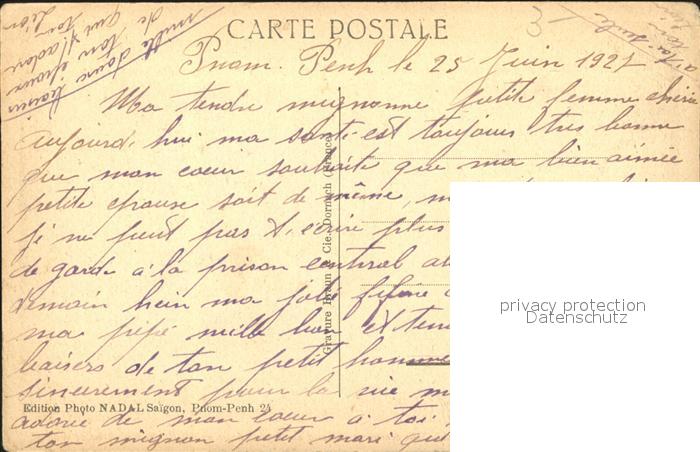 CARTE POSTALE
3-
Pnom. Penh le 25 Juin 1927
Ma tendre mignonne petite femme chérie
aujourd'hui ma santé est toujours très bonne
que mon coeur souhaite que ma bien aimée
petite épouse soit de même,
je ne peut pas t'écrire plus
de garde a la prison central
demain hein ma jolie
ma mille bon et
baisers de ton petit homme
sincerement pour la vie
adorée de mon coeur a toi
ton mignon petit mari qui
mille doux baisers
de ton époux
qui t'adore
Léon
Gravure Braun & Cie, Dornach (France)
Edition Photo NADAL Saïgon, Pnom-Penh 24
privacy protection
Datenschutz